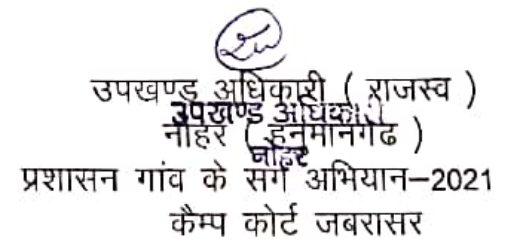 उपखण्ड अधिकारी ( राजस्व )
उपखण्ड अधिकारी
नोहर ( हनुमानगढ )
नोहर
प्रशासन गांव के संग अभियान–2021
कैम्प कोर्ट जबरासर